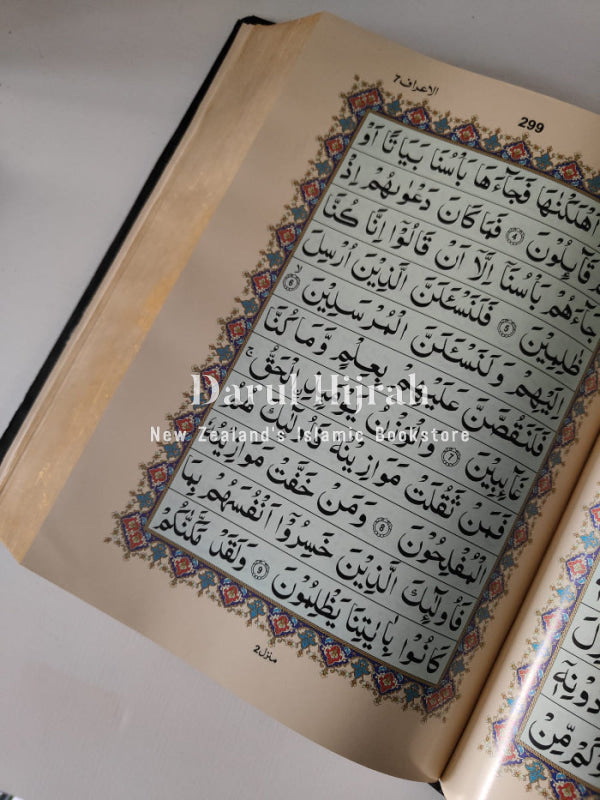 الاعراف 7
299
اَهْلَكْنٰهَا فَجَآءَهَا بَاْسُنَا بَيَاتًا اَوْ
قَآئِلُوْنَ 4 فَمَا كَانَ دَعْوٰىهُمْ اِذْ
جَآءَهُمْ بَاْسُنَاۤ اِلَّاۤ اَنْ قَالُوْۤا اِنَّا كُنَّا
ظٰلِمِيْنَ 5 فَلَنَسْـَٔلَنَّ الَّذِيْنَ اُرْسِلَ
اِلَيْهِمْ وَلَنَسْـَٔلَنَّ الْمُرْسَلِيْنَ 6
فَلَنَقُصَّنَّ عَلَيْهِمْ بِعِلْمٍ وَّمَا كُنَّا
غَآئِبِيْنَ 7 وَالْوَزْنُ يَوْمَئِذِ ِ۟الْحَقُّ ۚ
فَمَنْ ثَقُلَتْ مَوَازِيْنُهٗ فَاُولٰٓئِكَ هُمُ
الْمُفْلِحُوْنَ 8 وَمَنْ خَفَّتْ مَوَازِيْنُهٗ
فَاُولٰٓئِكَ الَّذِيْنَ خَسِرُوْۤا اَنْفُسَهُمْ بِمَا
كَانُوْا بِاٰيٰتِنَا يَظْلِمُوْنَ 9 وَلَقَدْ مَكَّنّٰكُمْ
منزل 2
دُوْنِهٖۤ
مِّنْ
Darul Hijrah
New Zealand's Islamic Bookstore